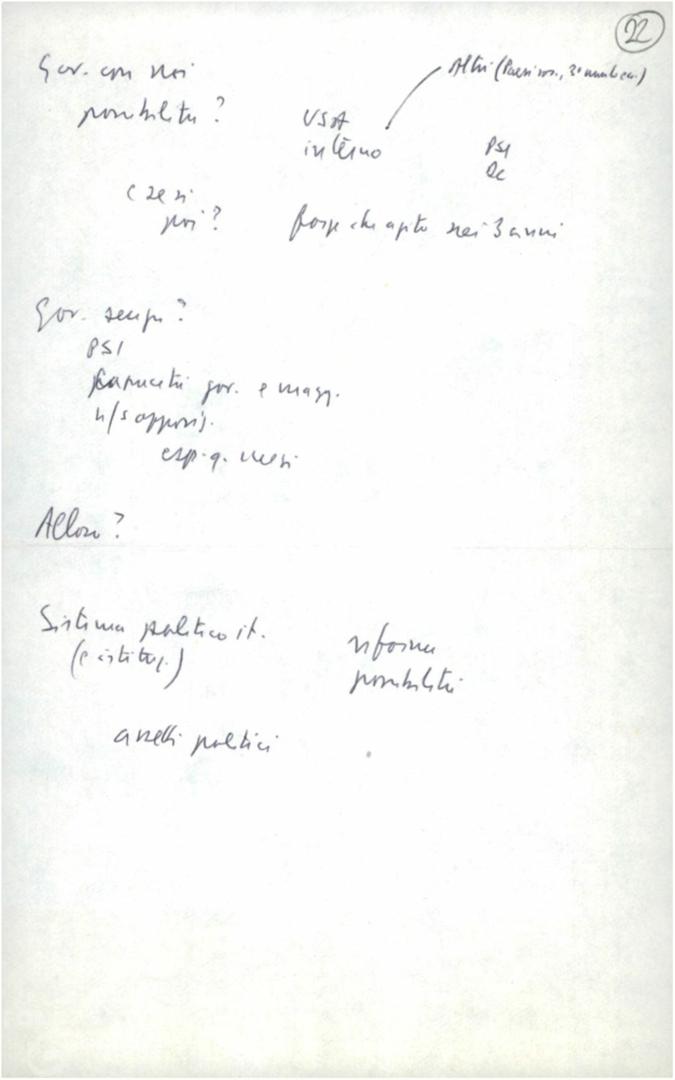 22
Gov. con noi
possibilità?
Altri (Paesi soc., 3º mondo ecc.)
USA
interno
PSI
DC
e se sì
poi?
forze che agito nei 3 anni
Gov. senza?
PSI
gov. e magg.
n/s opposiz.
esp. q. mesi
Allora?
Sistema politico it.
(e istituz.)
riforma
possibilità
assetti politici